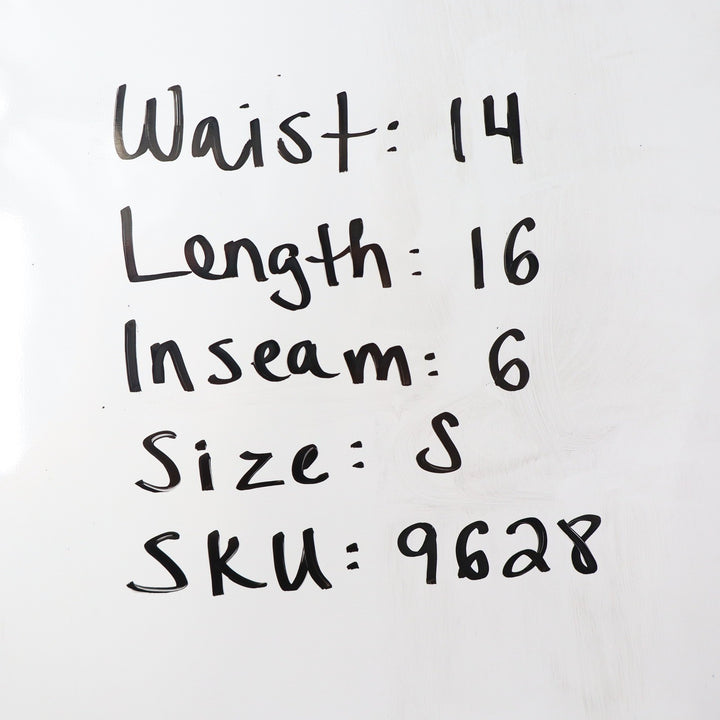 Waist: 14
Length: 16
Inseam: 6
Size: S
SKU: 9628